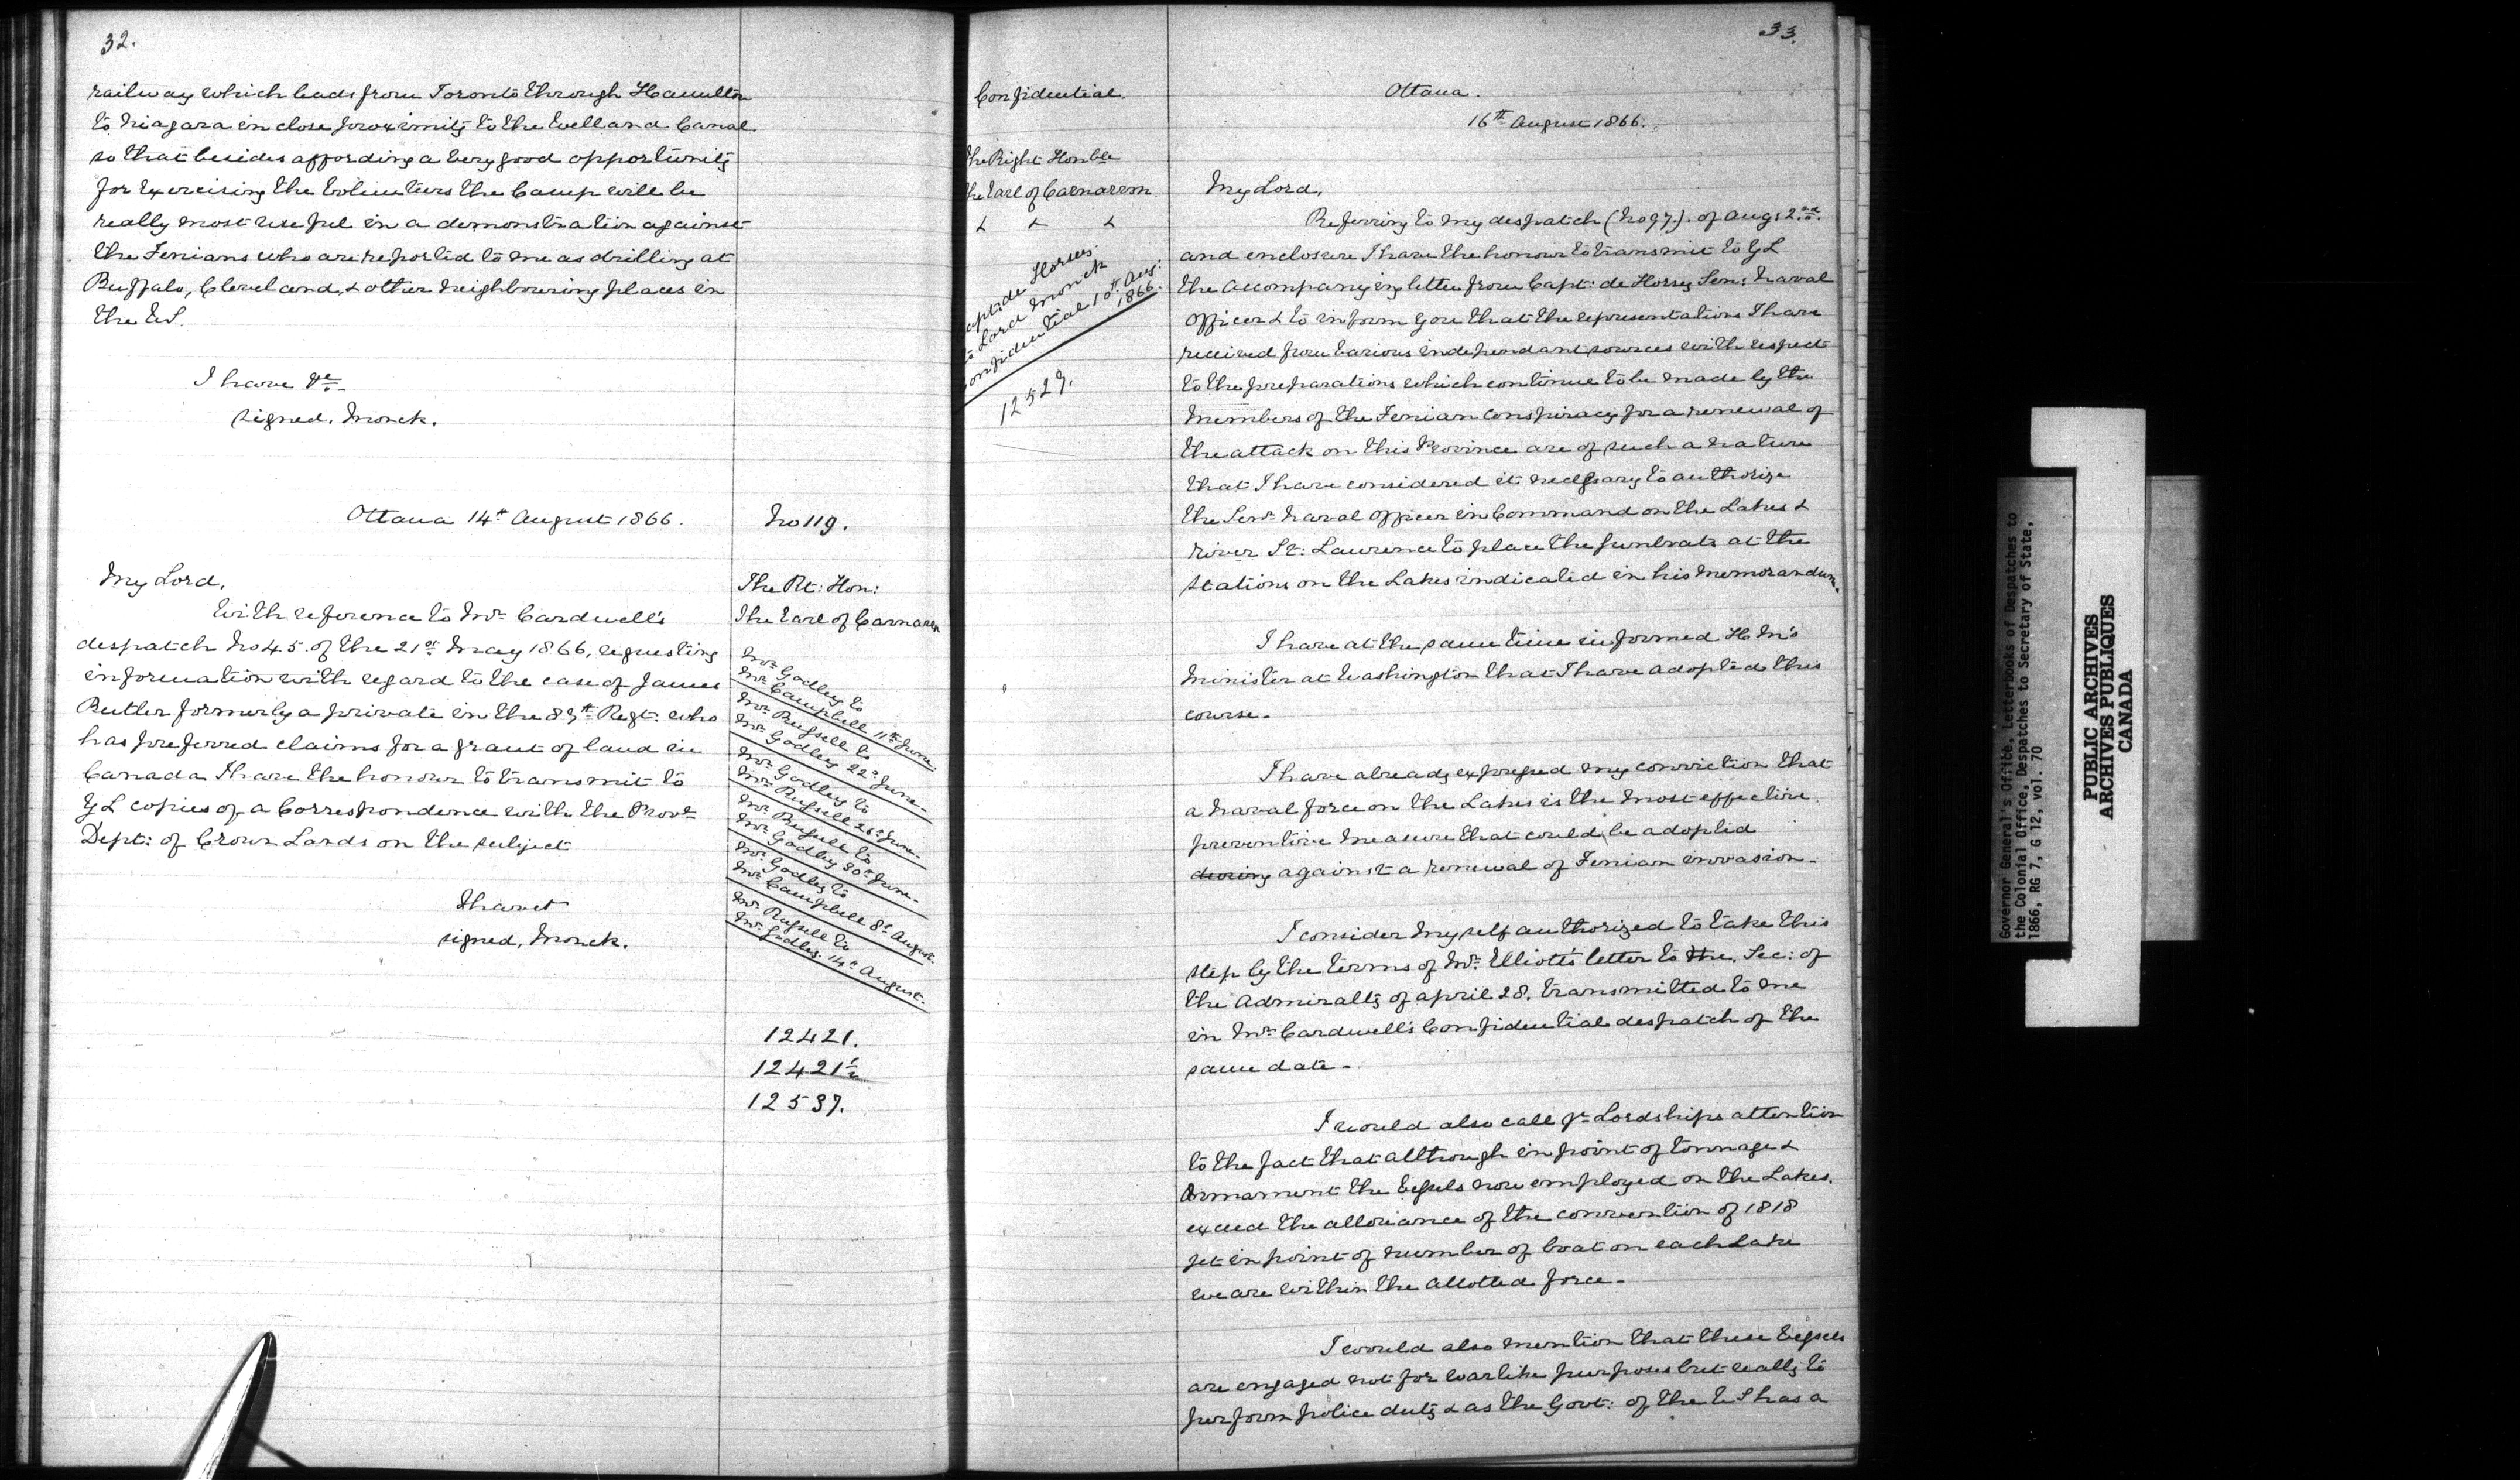 32.
railway which leads from Toronto through Hamilton
to Niagara in close proximity to the Welland Canal.
so that besides affording a very good opportunity
for exercising the Volunteers the Camp will be
really most useful in a demonstration against
the Fenians who are reported to me as drilling at
Buffalo, Cleveland, & other neighbouring places in
the US.
I have &c.
signed, Monck.
Ottawa 14th August 1866.
No 119.
My Lord,
The Rt: Hon:
The Earl of Carnarvon
With reference to Mr. Cardwell's
despatch No 45 of the 21st May 1866, requesting
information with regard to the case of James
Butler formerly a private in the 89th Regt: who
has preferred claims for a grant of land in
Canada I have the honour to transmit to
YL copies of a Correspondence with the Provl
Dept: of Crown Lands on the subject
I have &
signed, Monck.
Mr. Godley to
Mr. Campbell 11th June.
Mr. Russell to
Mr. Godley 22d June.
Mr. Godley to
Mr. Russell 26th June.
Mr. Russell to
Mr. Godley 30th June.
Mr. Godley to
Mr. Campbell 8th August.
Mr. Russell to
Mr. Godley. 14th August.
12421.
12421½
12537.
33.
Confidential.
The Right Honble
The Earl of Carnarvon
& & &
Capt de Horsey
to Lord Monck
Confidential 10th Aug:
1866.
12529.
Ottawa.
16th August 1866.
My Lord,
Referring to my despatch (No 97.) of Aug: 2nd.
and enclosure I have the honour to transmit to YL
the accompanying letter from Capt: de Horsey Sen: Naval
Officer & to inform you that the representations I have
received from various independant sources with respect
to the preparations which continue to be made by the
Members of the Fenian Conspiracy for a renewal of
the attack on this Province are of such a nature
that I have considered it necessary to authorize
the Senr. Naval Officer in Command on the Lakes &
River St: Lawrence to place the Gunboats at the
stations on the Lakes indicated in his Memorandum.
I have at the same time informed H M's
Minister at Washington that I have adopted this
course.
I have already expressed my conviction that
a Naval force on the Lakes is the most effective
preventive measure that could be adopted
during against a renewal of Fenian invasion.
I consider myself authorized to take this
step by the terms of Mr. Elliott's letter to the Sec: of
the Admiralty of April 28. transmitted to me
in Mr. Cardwell's Confidential despatch of the
same date.
I would also call yr Lordships attention
to the fact that allthough in point of tonnage &
Armament the Vessels now employed on the Lakes.
exceed the allowance of the convention of 1818
yet in point of number of boat on each Lake
we are within the allotted force.
I would also mention that these Vessels
are engaged not for warlike purposes but really to
perform police duty & as the Govt: of the US has a
Governor General's Office, Letterbooks of Despatches to
the Colonial Office, Despatches to Secretary of State,
1866, RG 7, G 12, vol. 70
PUBLIC ARCHIVES
ARCHIVES PUBLIQUES
CANADA